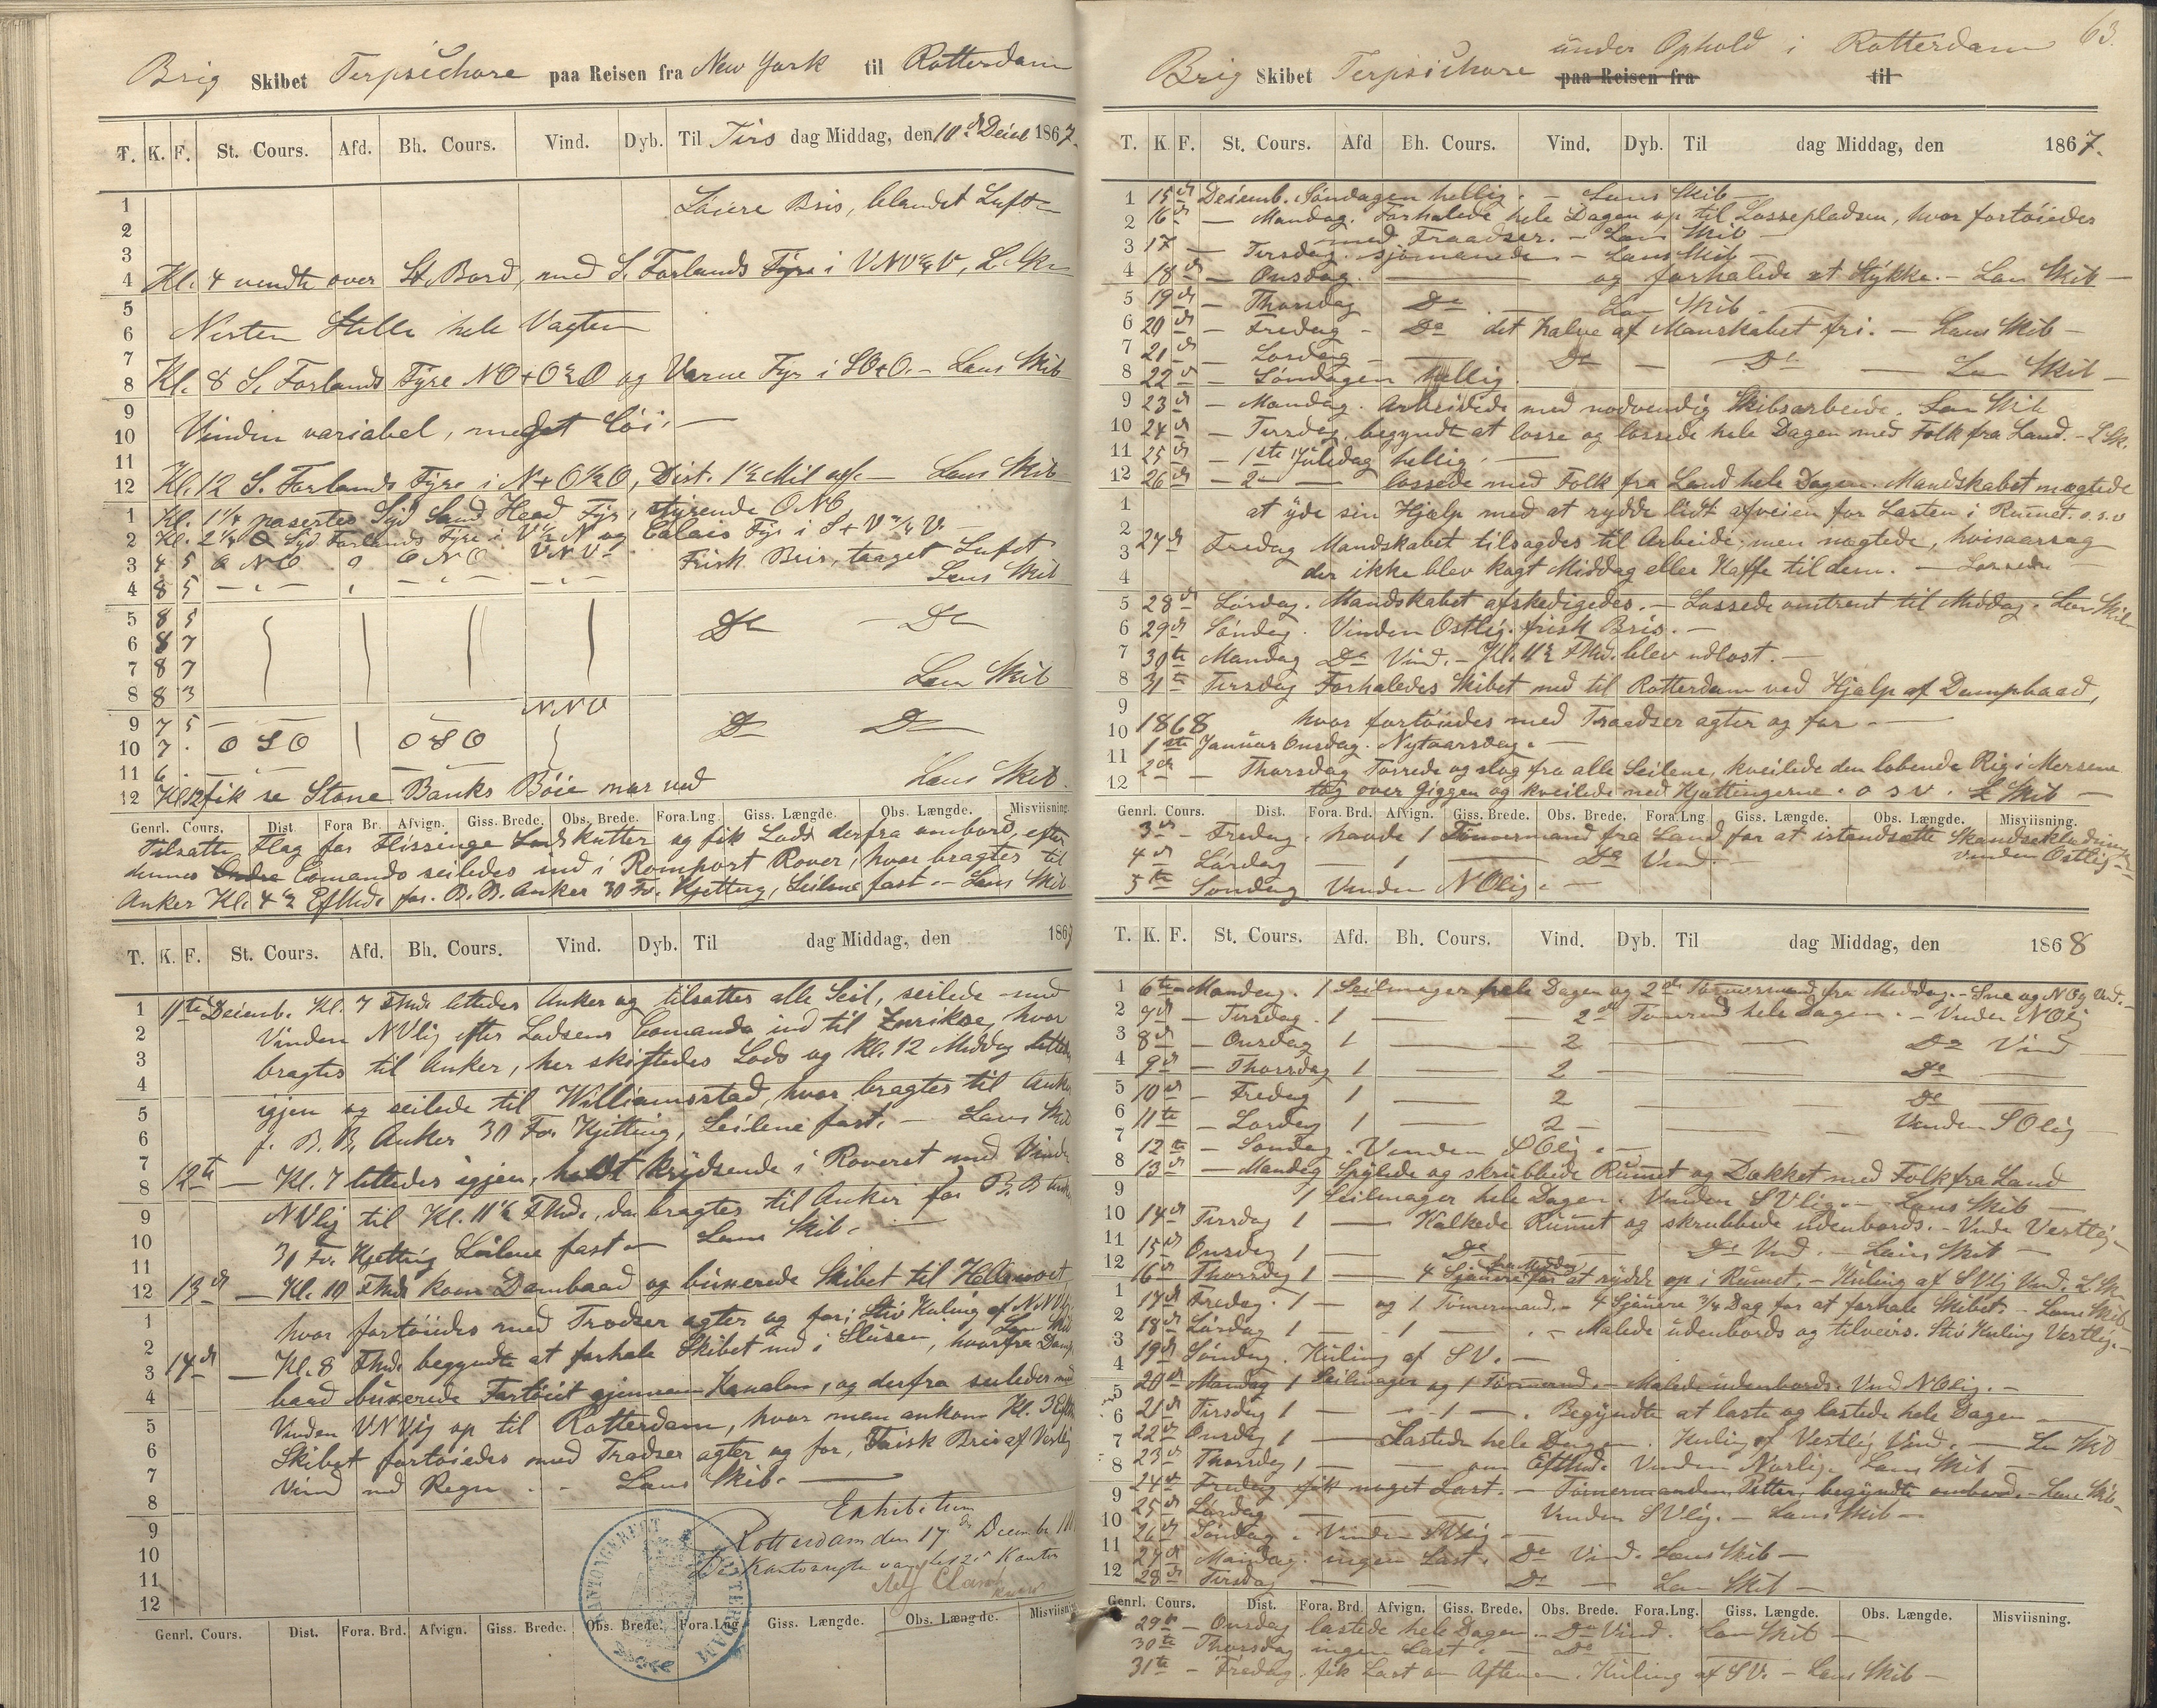 Brig Skibet Terpsichore paa Reisen fra New York til Rotterdam
T. K. F. St. Cours. Afd. Bh. Cours. Vind. Dyb. Til Tirs dag Middag, den 10de Decbr 1867.
1 Løiere Bris, blandet Luft
2
3
4 Kl. 4 vendte over St. Bord, med S. Forlands Fyre i VNV½V, L. Sk.
5
6 Nesten Stille hele Vagten
7
8 Kl. 8 S. Forlands Fyre NO+O½O og Varne Fyr i SO+O. – Lens Skib
9
10 Vinden variabel, meget løi. –
11
12 Kl. 12 S. Forlands Fyre i N+O½O, Dist. 1½ Mil aff. – Lens Skib
1 Kl. 1¼ paserters Syd Sand Head Fyr, styrende ONO
2 Kl. 2¼ Syd Forlands Fyre i V½N og Calais Fyr i S+V¾V. –
3 4 5 ONO 0 ONO VNV Frisk Bris, taaget Luft
4 8 5 – " – " – " – – " – Lens Skib
5 8 5 Do – Do
6 8 7
7 8 7
8 8 3 Lens Skib
NNV
9 7 5
10 7 . OSO OSO Do Do
11 6 .
12 Kl. 12 fik se Stone Banks Bøie nær ved Lens Skib.
Genrl. Cours. Dist. Fora Br. Afvign. Giss. Brede. Obs. Brede. Fora. Lng. Giss. Længde. Obs. Længde. Misviisning.
Tilsatte Flag for Flissinge Lodskutter og fik Lods derfra ombord, efter
dennes Comando seiledes ind i Romport Rover, hvor bragtes til
Anker Kl. 4½ Eftmd. for B. B. Anker 30 Fv. Kjetting, Seilene fast. – Lens Skib
T. K. F. St. Cours. Afd. Bh. Cours. Vind. Dyb. Til dag Middag, den 1867
1 11te Decemb. Kl. 7 Fmd. lettedes Anker og tilsattes alle Seil, seilede med
2 Vinden NVlig efter Lodsens Comando ind til Zerikse, hvor
3 bragtes til Anker, her skiftedes Lods og Kl. 12 Middag lettedes
4 igjen og seilede til Williamsstad, hvor bragtes til Anker
5 f. B. B. Anker 30 Fv. Kjetting, Seilene fast. – Lens Skib
6
7 12te – Kl. 7 lettedes igjen, holdt krydsende i Roveret med Vinden
8 NVlig til Kl. 11½ Fmd., da bragtes til Anker for B. B. Anker
9
10 30 Fv. Kjetting Seilene fast – Lens Skib. –
11
12 13de – Kl. 10 Fmd. kom Dambaad og buxerede Skibet til Helevoet
1 hvor fortøiedes med Trodser agter og for; Stiv Kuling af NNVlig
2 Lens Skib
3 14de – Kl. 8 Fmd. begyndte at forhale Skibet ind i Slusen, hvorfra Damp
4 baad buxerede Fartøiet gjennem Kanalen, og derfra seiledes med
5 Vinden VNVlig op til Rotterdam, hvor man ankom Kl. 3 Eftm.
6 Skibet fortøiedes med Trodser agter og for, Frisk Bris af Vestlig
7 Vind med Regn. – Lens Skib. –
8 Exhibitum
9 Rotterdam den 17 December
10 De Kantonregter van het 2e Kanton
11
12
KANTONGEREGT ROTTERDAM
Genrl. Cours. Dist. Fora. Brd. Afvign. Giss. Brede. Obs. Brede. Fora. Lng. Giss. Længde. Obs. Længde. Misviisning
63.
under Ophold i Rotterdam
Brig Skibet Terpsichore paa Reisen fra til
T. K. F. St. Cours. Afd Bh. Cours. Vind. Dyb. Til dag Middag, den 1867.
1 15de Decemb. Søndagen hellig. – Lens Skib –
2 16de – Mandag. Forhalede hele Dagen op til Lossepladsen, hvor fortøiedes
med Traadser. – Lens Skib
3 17 – Tirsdag. – Lens Skib –
4 18de – Onsdag. – og forhalede et Stykke. – Lens Skib –
5 19de – Thorsdag Do. – Lens Skib –
6 20de – Fredag – Do det halve af Manskabet fri. – Lens Skib –
7 21de – Lørdag – Do – Do – Lens Skib –
8 22de – Søndagen hellig.
9 23de – Mandag. Arbeidede med nødvendig Skibsarbeide. Lens Skib
10 24de – Tirsdag, begyndte at losse og lossede hele Dagen med Folk fra Land. – L. Sk.
11 25de – 1ste Juledag hellig. –
12 26de – 2 – lossede med Folk fra Land hele Dagen. Mandskabet nægtede
1 at yde sin Hjælp med at rydde lidt afveien for Lasten i Rummet. o.s.v
2 27de Fredag Mandskabet tilsagdes til Arbeide, men nægtede, hvisaarsag
3
4 der ikke blev kogt Middag eller Kaffe til dem. – Lossede
5 28de Lørdag. Mandskabet afskedigedes. – Lossede omtrent til Middag. Lens Skib
6 29de Søndag. Vinden Ostlig. frisk Bris. –
7 30te Mandag Do Vind. – Kl. 11½ Fmd. blev udlost. –
8 31te Tirsdag Forhaledes Skibet ned til Rotterdam ved Hjælp af Dampbaad,
9 hvor fortøiedes med Traadser agter og for. –
10 1868
11 1ste Januar Onsdag. Nytaarsdag. –
12 2de – Thorsdag Tørrede og slog fra alle Seilene, kveilede den løbende Rig i Mersene
tog over Giggen og kveilede ned Kjættingerne. o s v. L Skib –
Genrl. Cours. Dist. Fora. Brd. Afvign. Giss. Brede. Obs. Brede. Fora. Lng Giss. Længde. Obs. Længde. Misviisning.
3de – Fredag. havde 1 Tømmermand fra Land for at istandsætte Skandseklædningen
4de Lørdag – 1 – Do Vind. – Vinden Ostlig –
5te Søndag Vinden NOlig. –
T. K. F. St. Cours. Afd. Bh. Cours. Vind. Dyb. Til dag Middag, den 1868
1 6te Mandag. 1 Seilmager hele Dagen og 2de Tømmermænd fra Middag. – Sne og NOlig Vind. –
2 7de – Tirsdag. 1 – 2de Tømmermd hele Dagen. – Vinden NOlig
3 8de – Onsdag 1 – 2 – Do Vind
4 9de – Thorsdag 1 – 2 – Do –
5 10de – Fredag 1 – 2 – Do –
6 11te – Lørdag 1 – 2 – Vinden SOlig –
7 12te – Søndag. Vinden SOlig. –
8 13de – Mandag Spylede og skrubbede Rumet og Dækket med Folk fra Land
9 1 Seilmager hele Dagen. Vinden SVlig. – Lens Skib –
10 14de Tirsdag 1 – Kalkede Rumet og skrubbede udenbords. – Vinden Vestlig –
11 15de Onsdag 1 – Do – Do Vind. – Lens Skib –
12 16de Thorsdag 1 – 4 Sjauere fra Middag for at rydde op i Rumet. – Kuling af SVlig Vind. L. Sk.
1 17de Fredag. 1 – og 1 Tømermand. – 4 Sjauere ¾ Dag for at forhale Skibet. – Lens Skib
2 18de Lørdag 1 – 1 – . – Malede udenbords og tilveirs. Stiv Kuling Vestlig. –
3 19de Søndag. Kuling af SV. –
4
5 20de Mandag 1 Seilmager og 1 Tømermd. – Malede udenbords. Vind NOlig. –
6 21de Tirsdag 1 – 1 – . Begyndte at laste og lastede hele Dagen –
7 22de Onsdag 1 – Lastede hele Dagen. Kuling af Vestlig Vind. – Lens Skib
8 23de Thorsdag 1 – om Eftmd. Vinden Norlig. Lens Skib –
9 24de Fredag fik noget Last. – Tømermanden Petter begyndte ombord. – Lens Skib –
10 25de Lørdag – Vinden SVlig. – Lens Skib –
11 26de Søndag. Vinden SVlig –
12 27de Mandag. ingen Last. Do Vind. Lens Skib –
28de Tirsdag – – Do – Lens Skib –
Genrl. Cours. Dist. Fora. Brd. Afvign. Giss. Brede. Obs. Brede. Fora. Lng. Giss. Længde. Obs. Længde. Misviisning.
29de – Onsdag lastede hele Dagen. – Do Vind. Lens Skib –
30te Thorsdag ingen Last. – Do –
31te – Fredag. fik Last om Aftenen. Kuling af SV. – Lens Skib –